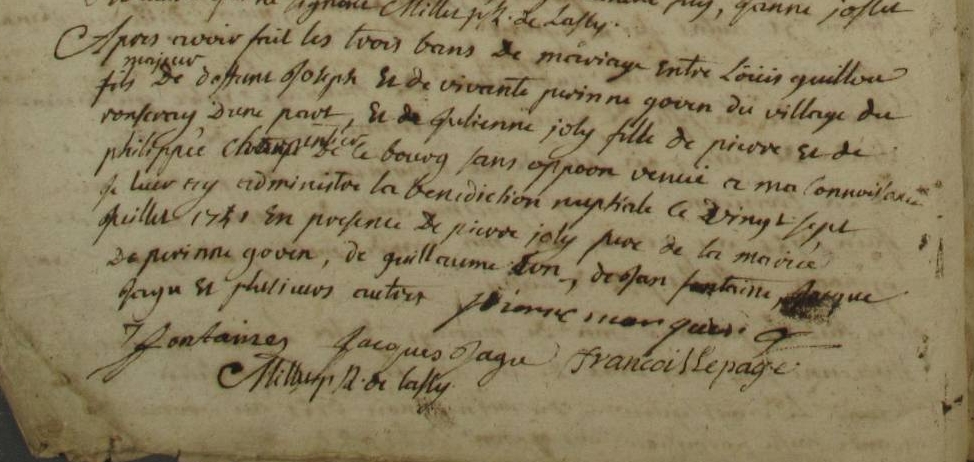 Millet p R. de Lassy.
Apres avoir fait les trois bans de mariage entre Loüis guillou
majeur
fils de deffunt Joseph et de vivante perinne goven du village du
ronseray d'une part, et de Julienne joly fille de pierre et de
philippe charpentier de ce bourg sans oppoon venüe a ma connoissance
je leur ay administré la benediction nuptiale ce vingt sept
juillet 1741 en presence de pierre joly pere de la mariée
de perinne goven, de guillaume, de Jan fontaine, Jacque
Jagu et plusieurs autres
pierre
fontaines Jacques Jagu Francois Lepage
Millet p R. de Lassy.